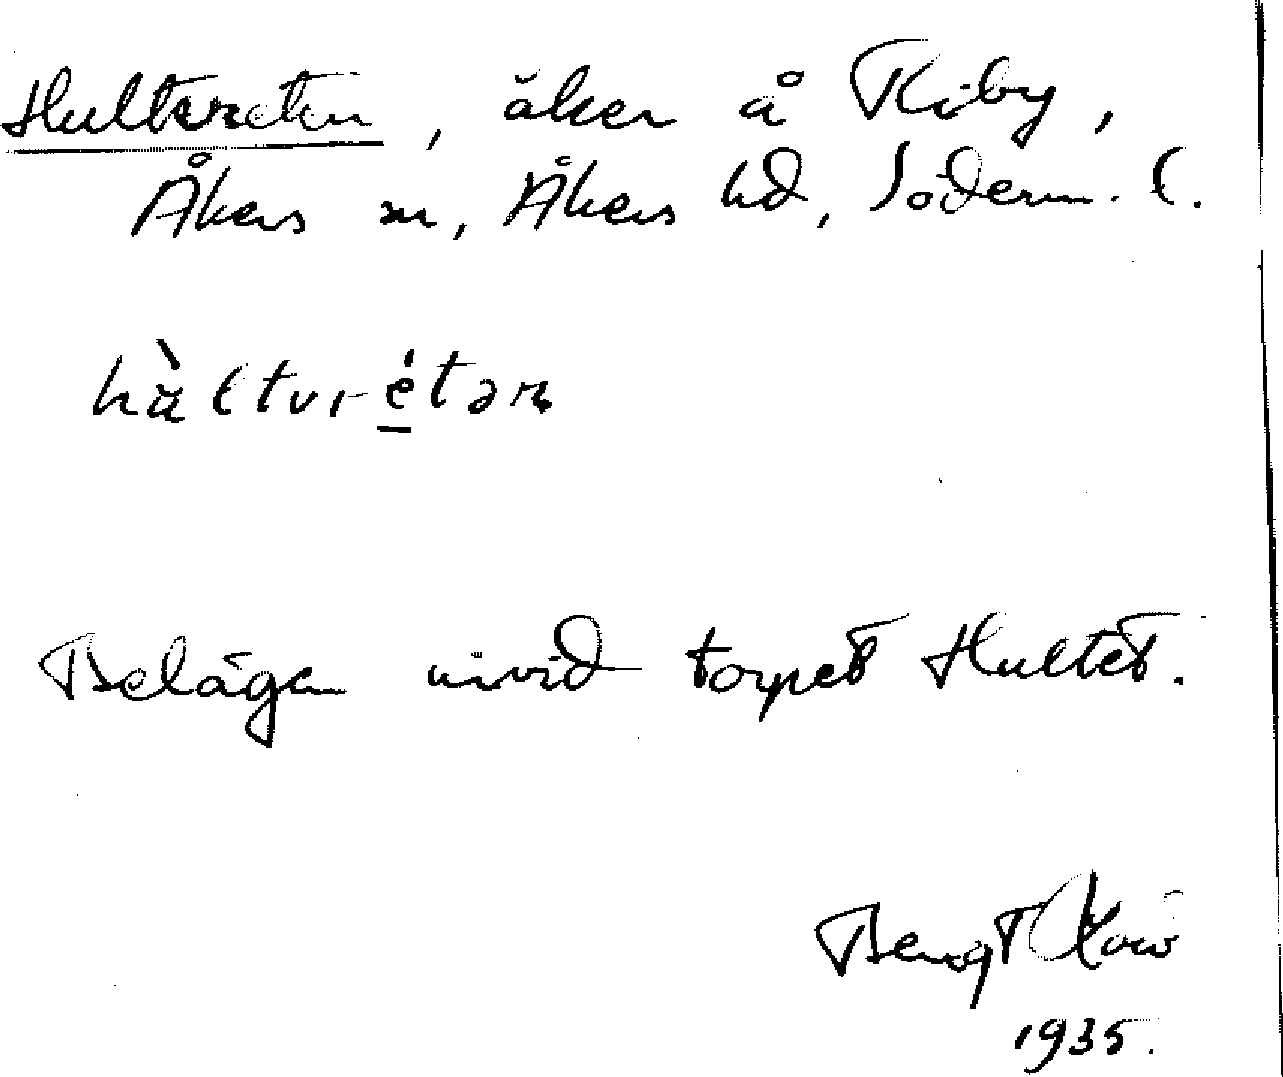 Hultvreten, åker å Kiby,
Åkers sn, Åkers hd, Söderm. l.
Belägen invid torpet Hultet.
Bengt
1935.